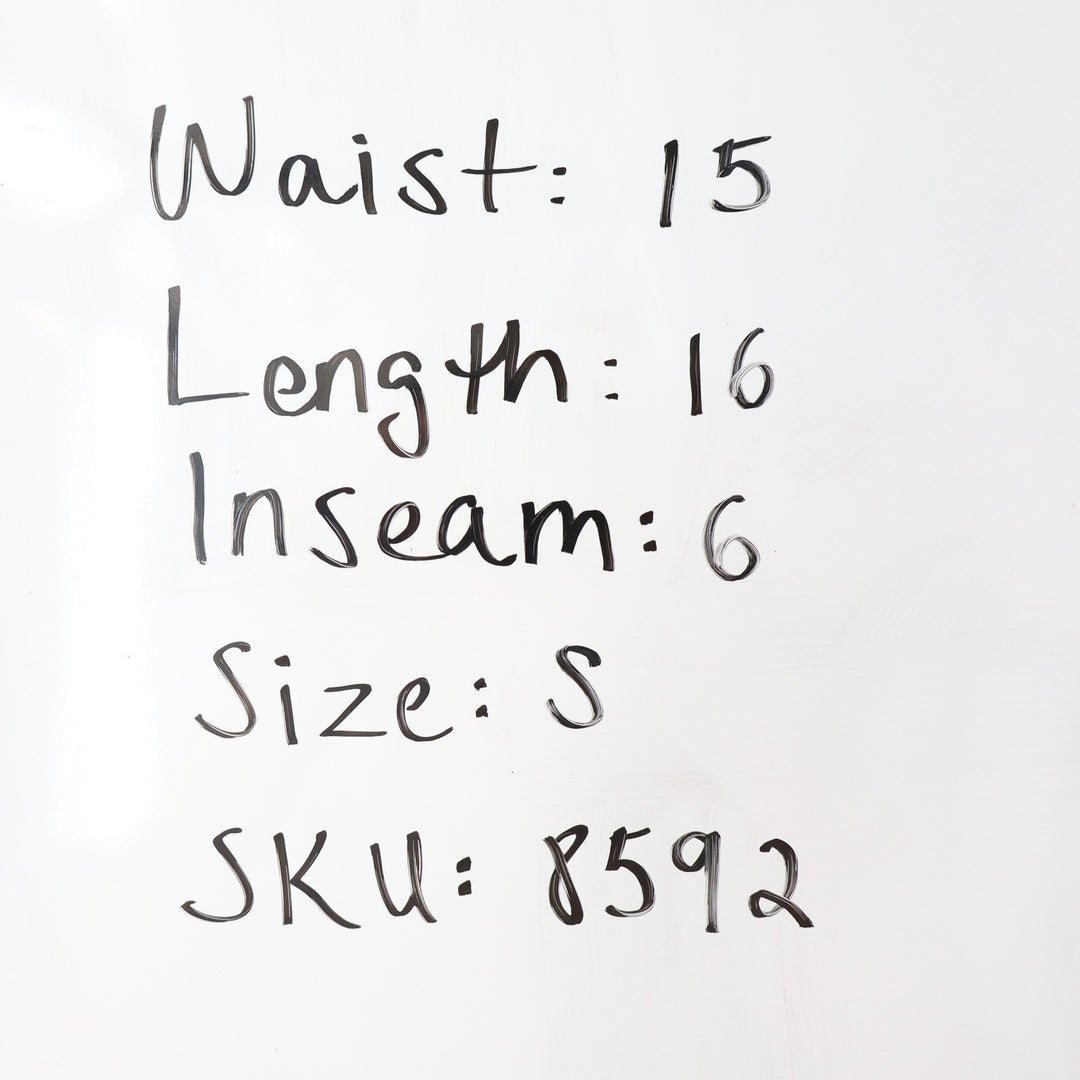 Waist: 15
Length: 16
Inseam: 6
Size: S
SKU: 8592